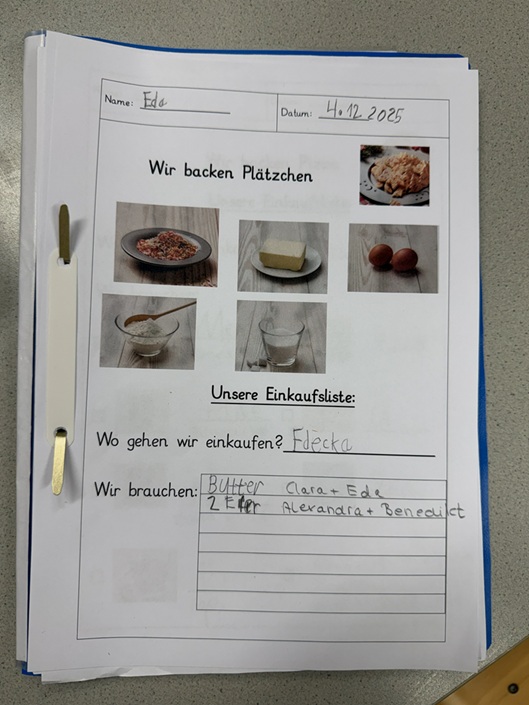 Name: Eda Datum: 4.12.2025
Wir backen Plätzchen
Unsere Einkaufsliste:
Wo gehen wir einkaufen? Edecka
Wir brauchen: Butter Clara + Eda
2 Eier Alexandra + Benedikt